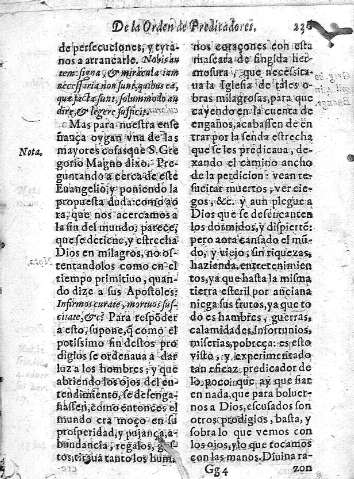 De la Orden de Predicadores. 236
de persecuciones, y tyra
nos a arrancarle. Nobis au
tem signa, & miracula iam
necessaria non sunt, quibus ea,
quæ facta sunt, solummodo au
dire, & legere sufficit.
Mas para nuestra ense
ñança oygan vna de las
mayores cosas que S. Gre
Nota.
gorio Magno dixo. Pre-
guntando a cerca de este
Euangelio, y poniendo la
propuesta duda: como ao
ra, que nos acercamos a
la fin del mundo; parece,
que se detiene, y estrecha
Dios en milagros, no os-
tentandolos como en el
tiempo primitiuo, quan-
do dize a sus Apostoles:
Infirmos curate, mortuos sus-
citate, &c? Para respōder
a esto, supone, q̃ como el
potissimo fin destos pro
digios se ordenaua a dar
luz a los hombres; y que
abriendo los ojos del en-
tendimiento, se desenga-
ñassen, como entonces el
mundo era moço en su
prosperidad, y pujança, a-
bundancia, regalos, gus-
tos, tiraua tanto los hum.
nos coraçones con esta
mascara de fingida her-
mosura, que necessita-
ua la Iglesia de tales o-
bras milagrosas, para que
cayendo en la cuenta de
engaños, acabassen de en
trar por la senda estrecha
que se les predicaua, de-
xando el camino ancho
de la perdicion: vean re-
suscitar muertos, ver cie-
gos, &c. y aun plegue a
Dios que se desencanten
los dormidos, y dispierté:
pero aora cansado el mū-
do, y viejo, sin riquezas,
hazienda, entretenimien
tos, ya que hasta la misma
tierra esteril por anciana
niega sus frutos, ya que to
do es hambres, guerras,
calamidades, infortunios,
miserias, pobreça: es esto
visto, y experimentado
tan eficaz predicador de
lo poco que ay que fiar
en nada, que para boluer-
nos a Dios, escusados son
otros prodigios, basta, y
sobra lo que vemos con
los ojos, y lo que tocamos
con las manos. Diuina ra-
Gg 4 zon